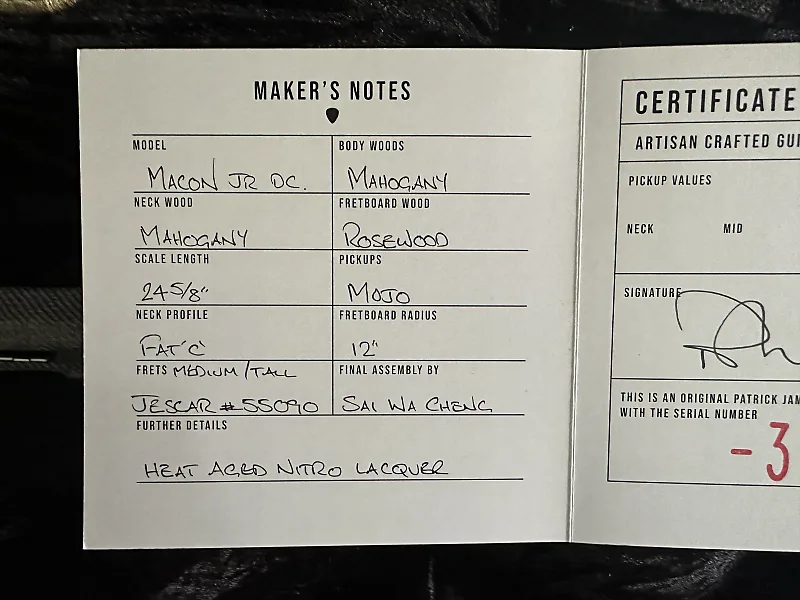 MAKER'S NOTES
MODEL
MACON JR DC.
BODY WOODS
MAHOGANY
NECK WOOD
MAHOGANY
FRETBOARD WOOD
ROSEWOOD
SCALE LENGTH
24 5/8"
PICKUPS
MOJO
NECK PROFILE
FAT 'C'
FRETBOARD RADIUS
12"
FRETS MEDIUM/TALL
JESCAR #55090
FINAL ASSEMBLY BY
SAI WA CHENG
FURTHER DETAILS
HEAT AGED NITRO LACQUER
CERTIFICATE
ARTISAN CRAFTED GUI
PICKUP VALUES
NECK MID
SIGNATURE
THIS IS AN ORIGINAL PATRICK JAM
WITH THE SERIAL NUMBER
-3